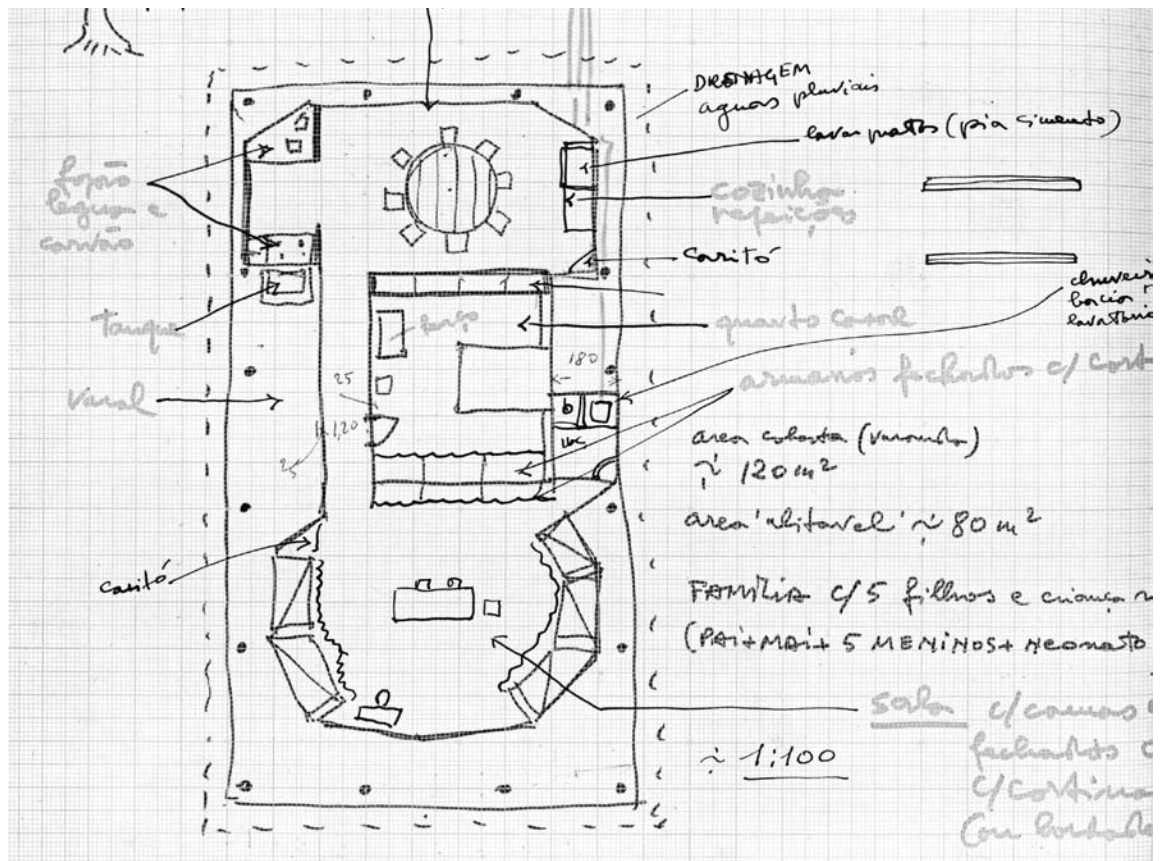 DRENAGEM
aguas pluviais
lavar pratos (pia cimento)
fogão
legna e
carvão
cozinha
refeições
caritó
chuveiro
bacia
lavatório
Tanque
quarto casal
berço
180
armarios fechados c/ cort
25
Varal
1,20
25
WC
area coberta (varanda)
~ 120 m²
area 'abitavel' ~ 80 m²
caritó
FAMÍLIA c/ 5 filhos e criança
(PAI+MAI+ 5 MENINOS+ Neonato
sala c/ camas
fechados
~ 1:100
c/ cortina